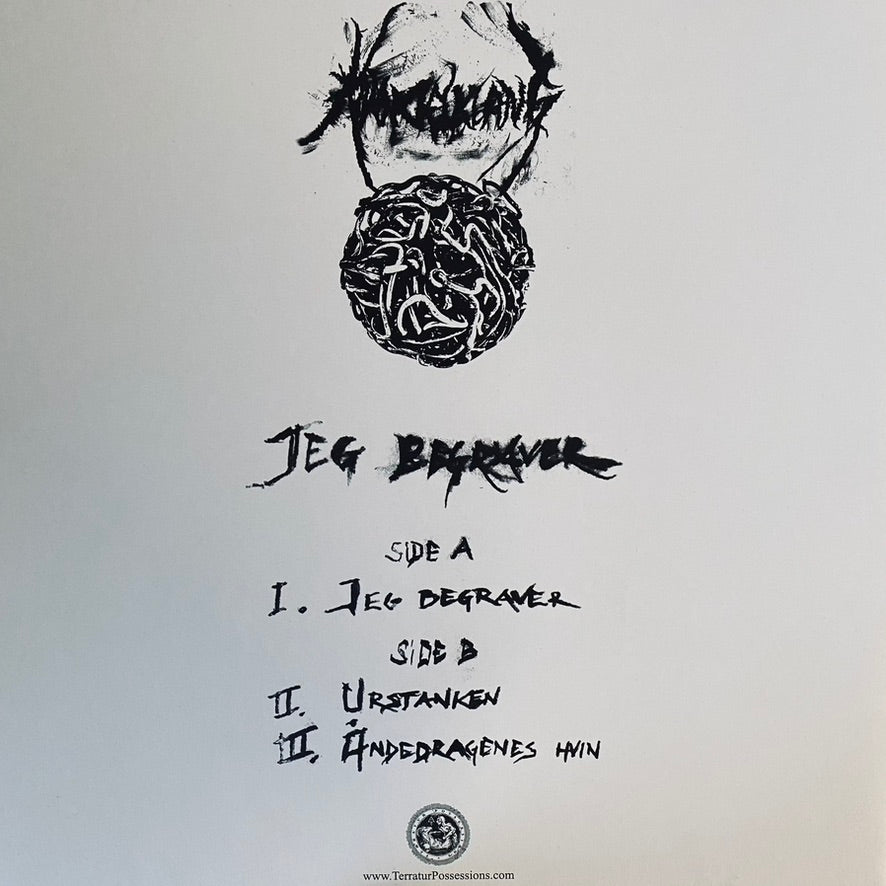 JEG BEGRAVER
SIDE A
I. JEG BEGRAVER
SIDE B
II. URSTANKEN
III. ÅNDEDRAGENES HVIN
www.TerraturPossessions.com